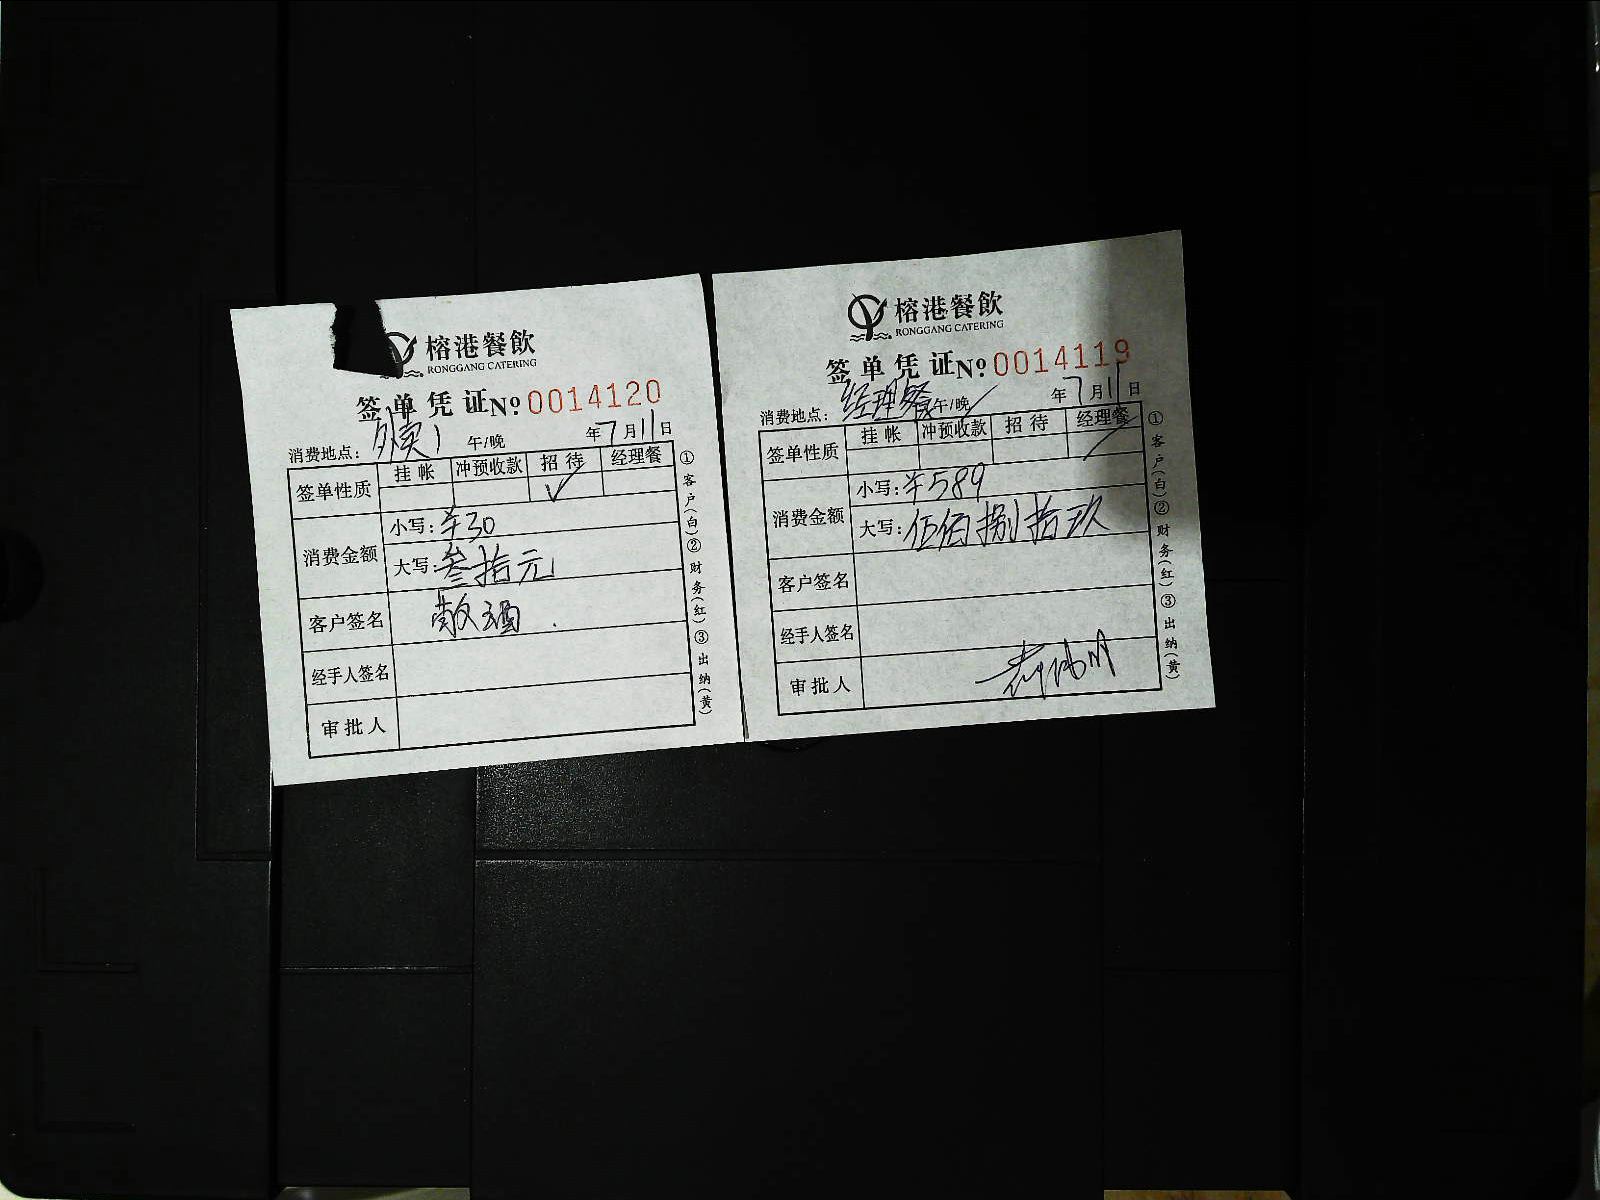 榕港餐飲
RONGGANG CATERING
签单凭证№ 0014120
消费地点：外卖1 午/晚 年7月11日
签单性质 挂帐 冲预收款 招待 经理餐
✓
消费金额 小写：¥30
大写：叁拾元
客户签名 散酒.
经手人签名
审批人
①客户(白)②财务(红)③出纳(黄)
榕港餐飲
RONGGANG CATERING
签单凭证№ 0014119
消费地点：经理餐 午/晚 年7月11日
签单性质 挂帐 冲预收款 招待 经理餐
消费金额 小写：¥589
大写：伍佰捌拾玖
客户签名
经手人签名
审批人
①客户(白)②财务(红)③出纳(黄)